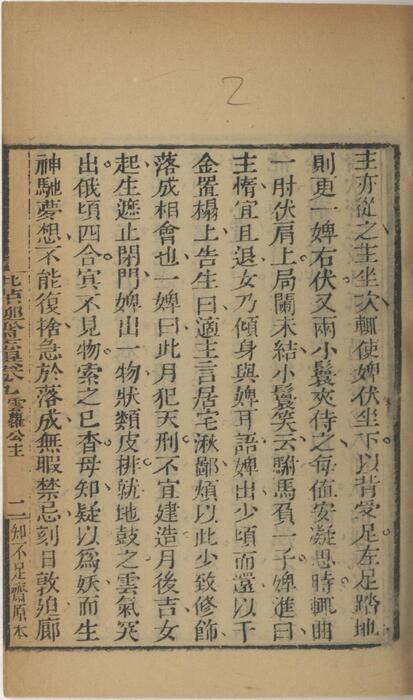 2
主亦從之主坐次輒使婢伏坐下以背受足左足踏地
則更一婢右伏又兩小鬟夾侍之每值安凝思時輒曲
一肘伏肩上局闌未結小鬟笑云駙馬負一子婢進曰
主惰宜且退女乃傾身與婢耳語婢出少頃而還以千
金置榻上告生曰適主言居宅湫鄙煩以此少致修飾
落成相會也一婢曰此月犯天刑不宜建造月後吉女
起生遮止閉門婢出一物狀類皮排就地鼓之雲氣突
出俄頃四合冥不見物索之已杳母知疑以為妖而生
神馳夢想不能復捨急於落成無暇禁忌刻日敦迫廊
批點聊齋志異卷九 雲蘿公主 二 知不足齋原本